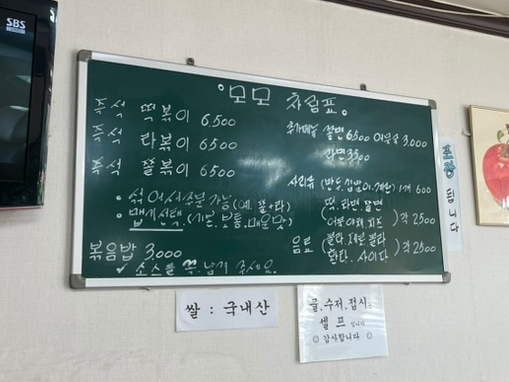 SBS
모모 차림표
즉석 떡볶이 6,500
즉석 라볶이 6500
즉석 쫄볶이 6500
• 섞어서 주문 가능 (예. 쫄+라)
• 맵기 선택. (기본. 보통. 매운맛)
볶음밥 3,000
✓ 소스를 꼭. 남겨 주세요.
추가메뉴 쫄면 6,500 어묵국 3,000
라면 3,500
사리류 (만두. 김밥이. 계란) 1개 600
(떡. 라면. 쫄면
어묵야채. 치즈) 각 2500
음료 (콜라. 제로콜라
환타. 사이다) 각 2500
포장
됩니다
쌀 : 국내산
물. 수저. 접시는
셀프 입니다
☺ 감사합니다 ☺